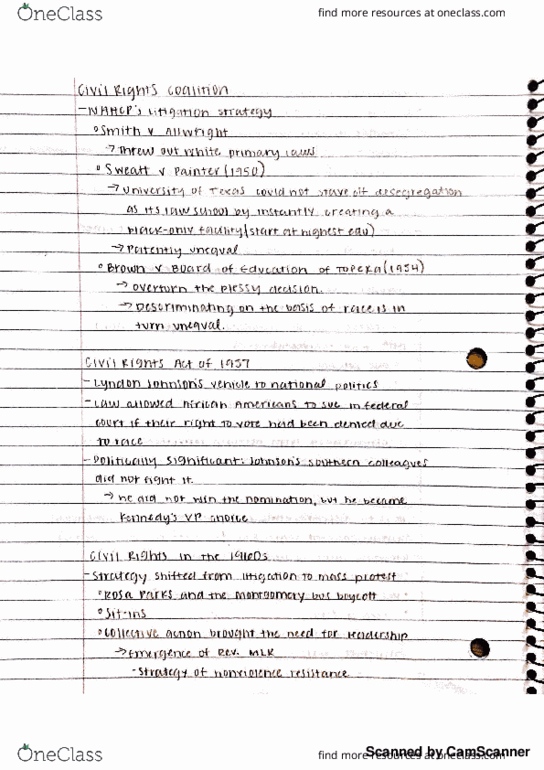 OneClass
find more resources at oneclass.com
Civil Rights Coalition
- NAACP's litigation strategy
° Smith v Allwright
→ Threw out white primary laws
° Sweatt v Painter (1950)
→ University of Texas could not stave off desegregation
as its law school by instantly creating a
black-only facility (start at highest edu)
→ Patently unequal
° Brown v Board of Education of Topeka (1954)
→ overturn the plessy decision.
→ Descriminating on the basis of race is in
turn unequal.
Civil Rights Act of 1957
- Lyndon Johnson's vehicle to national politics
- Law allowed African Americans to sue in federal
court if their right to vote had been denied due
to race
- Politically significant: Johnson's southern colleagues
did not fight it.
→ he did not win the nomination, but he became
Kennedy's VP choice
Civil Rights in the 1960s
- Strategy shifted from litigation to mass protest
° Rosa Parks and the Montgomery bus boycott
° Sit-ins
° Collective action brought the need for leadership
→ Emergence of Rev. MLK
- Strategy of nonviolence resistance
OneClass
find more resources at oneclass.com
Scanned by CamScanner